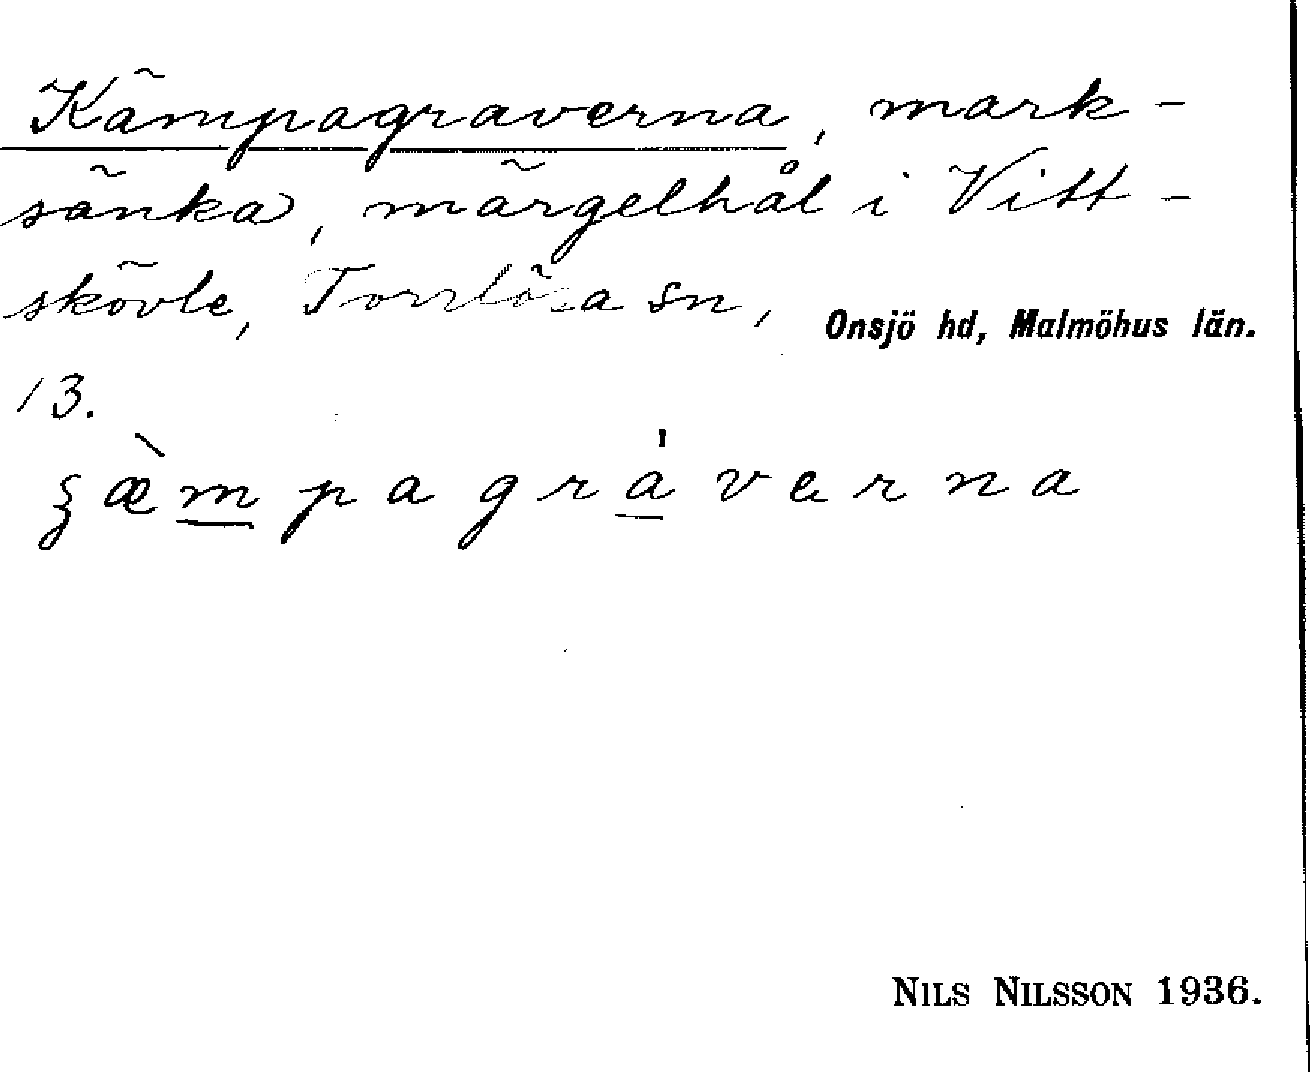 Kämpagraverna, mark-
sänka, märgelhål i Vitt-
skövle, Torrlösa sn, Onsjö hd, Malmöhus län.
13.
ꜿæ̀mpagráverna
NILS NILSSON 1936.